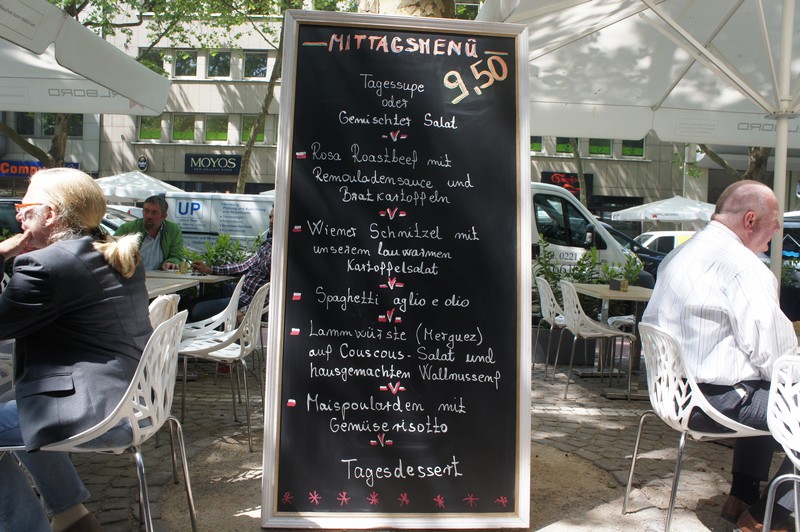 MITTAGSMENÜ
9,50
Tagessupe
oder
Gemischter Salat
-V-
Rosa Roastbeef mit
Remouladensauce und
Bratkartoffeln
-V-
Wiener Schnitzel mit
unserem lauwarmen
Kartoffelsalat
-V-
Spaghetti aglio e olio
-V-
Lammwürste (Merguez)
auf Couscous-Salat und
hausgemachten Wallnussenf
-V-
Maispoularden mit
Gemüserisotto
-V-
Tagesdessert
MOYOS
Comp
UP
0221